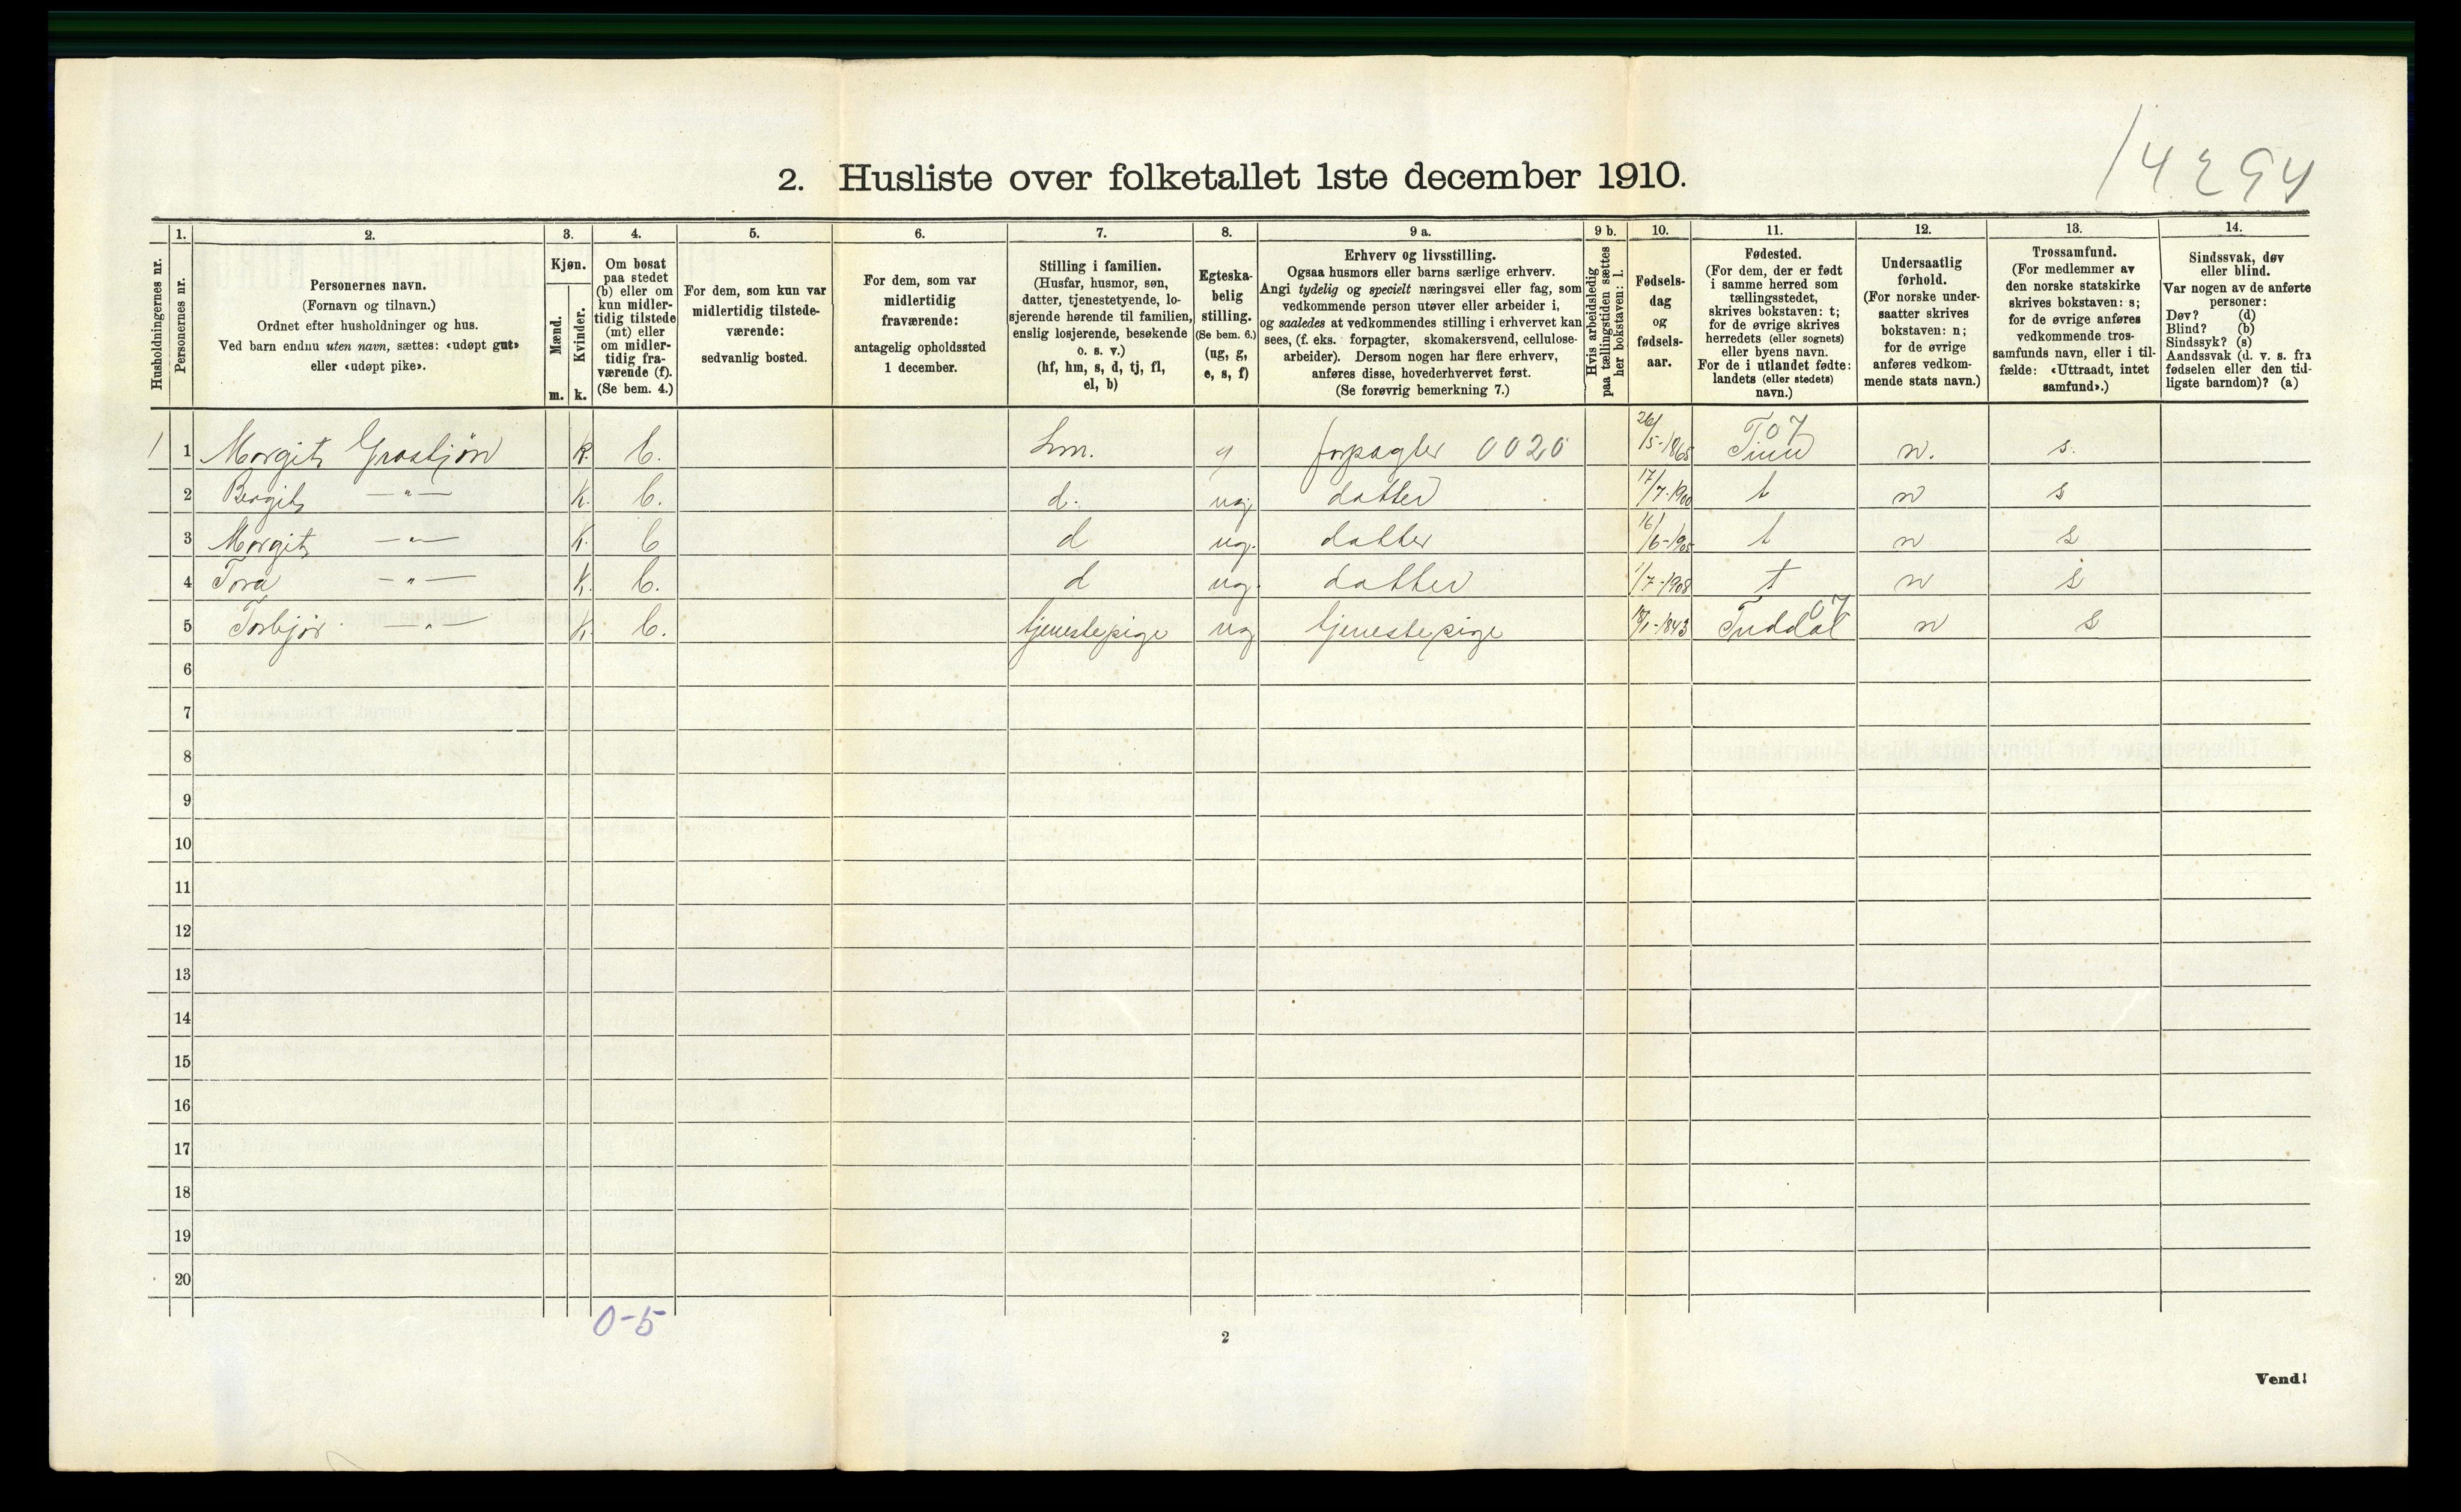 14294
2. Husliste over folketallet 1ste december 1910.
Husholdningernes nr.
1. Personernes nr.
2. Personernes navn.
(Fornavn og tilnavn.)
Ordnet efter husholdninger og hus.
Ved barn endnu uten navn, sættes: «udøpt gut»
eller «udøpt pike».
3. Kjøn.
Mænd. m.
Kvinder. k.
4. Om bosat
paa stedet
(b) eller om
kun midler-
tidig tilstede
(mt) eller
om midler-
tidig fra-
værende (f).
(Se bem. 4.)
5. For dem, som kun var
midlertidig tilstede-
værende:
sedvanlig bosted.
6. For dem, som var
midlertidig
fraværende:
antagelig opholdssted
1 december.
7. Stilling i familien.
(Husfar, husmor, søn,
datter, tjenestetyende, lo-
sjerende hørende til familien,
enslig losjerende, besøkende
o. s. v.)
(hf, hm, s, d, tj, fl,
el, b)
8. Egteska-
belig
stilling.
(Se bem. 6.)
(ug, g,
e, s, f)
9 a. Erhverv og livsstilling.
Ogsaa husmors eller barns særlige erhverv.
Angi tydelig og specielt næringsvei eller fag, som
vedkommende person utøver eller arbeider i,
og saaledes at vedkommendes stilling i erhvervet kan
sees, (f. eks. forpagter, skomakersvend, cellulose-
arbeider). Dersom nogen har flere erhverv,
anføres disse, hovederhvervet først.
(Se forøvrig bemerkning 7.)
9 b. Hvis arbeidsledig
paa tællingstiden sættes
her bokstaven: l.
10. Fødsels-
dag
og
fødsels-
aar.
11. Fødested.
(For dem, der er født
i samme herred som
tællingsstedet,
skrives bokstaven: t;
for de øvrige skrives
herredets (eller sognets)
eller byens navn.
For de i utlandet fødte:
landets (eller stedets)
navn.)
12. Undersaatlig
forhold.
(For norske under-
saatter skrives
bokstaven: n;
for de øvrige
anføres vedkom-
mende stats navn.)
13. Trossamfund.
(For medlemmer av
den norske statskirke
skrives bokstaven: s;
for de øvrige anføres
vedkommende tros-
samfunds navn, eller i til-
fælde: «Uttraadt, intet
samfund».)
14. Sindssvak, døv
eller blind.
Var nogen av de anførte
personer:
Døv? (d)
Blind? (b)
Sindssyk? (s)
Aandssvak (d. v. s. fra
fødselen eller den tid-
ligste barndom)? (a)
1 1 Margit Grastjøn k. b. hm. g forpagter 0020 26/5-1865 Tinn 07 n. s.
2 Bergit —"— k. b. d. ug. datter 17/7-1900 t n s
3 Margit —"— k. b d ug. datter 16/6-1905 t n s
4 Tora —"— k. b. d ug. datter 1/7-1908 t n s
5 Torbjør —"— k. b. tjenestepige ug tjenestepige 18/1-1843 Tuddal 07 n s
6
7
8
9
10
11
12
13
14
15
16
17
18
19
20
0-5
2
Vend!